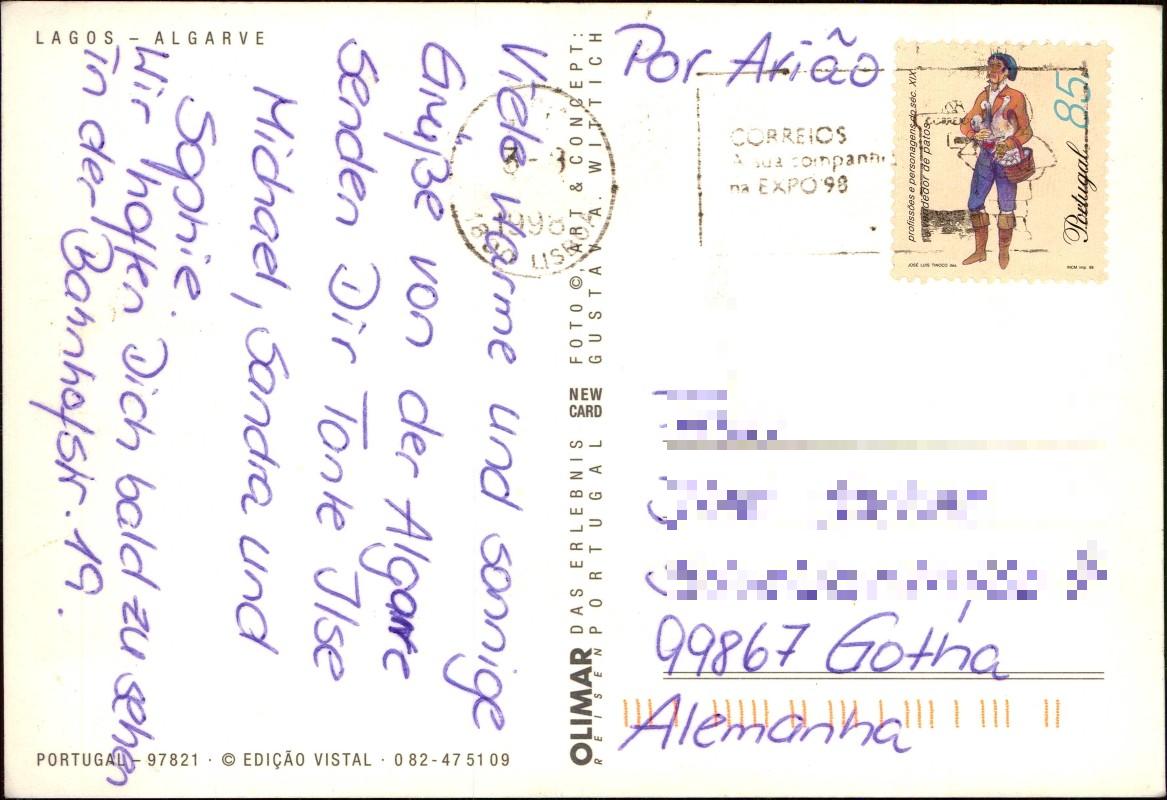 LAGOS – ALGARVE
Viele warme und sonnige
Grüße von der Algarve
senden Dir Tante Ilse
Michael, Sandra und
Sophie.
Wir hoffen Dich bald zu sehen
in der Bahnhofstr. 19.
PORTUGAL – 97821 · © EDIÇÃO VISTAL · 082-475109
FOTO ©, ART & CONCEPT:
GUSTAV A. WITTICH
NEW
CARD
OLIMAR DAS ERLEBNIS
REISEN PORTUGAL
Por Arião
CORREIOS
A sua companhi
na EXPO'98
1998
LISBOA
profissões e personagens do séc. XIX
vendedor de patos
85
Portugal
JOSÉ LUIS TINOCO des.
INCM imp. 98
99867 Gotha
Alemanha